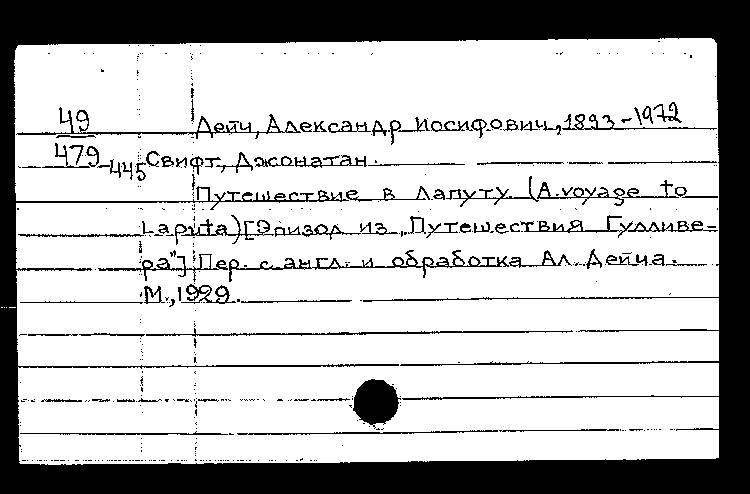 49 Дейч, Александр Иосифович, 1893-1972
479-445 Свифт, Джонатан.
Путешествие в Лапуту. (A voyage to
Laputa) [Эпизод из „Путешествия Гулливе-
ра"]. Пер. с англ. и обработка Ал. Дейча.
М., 1929.